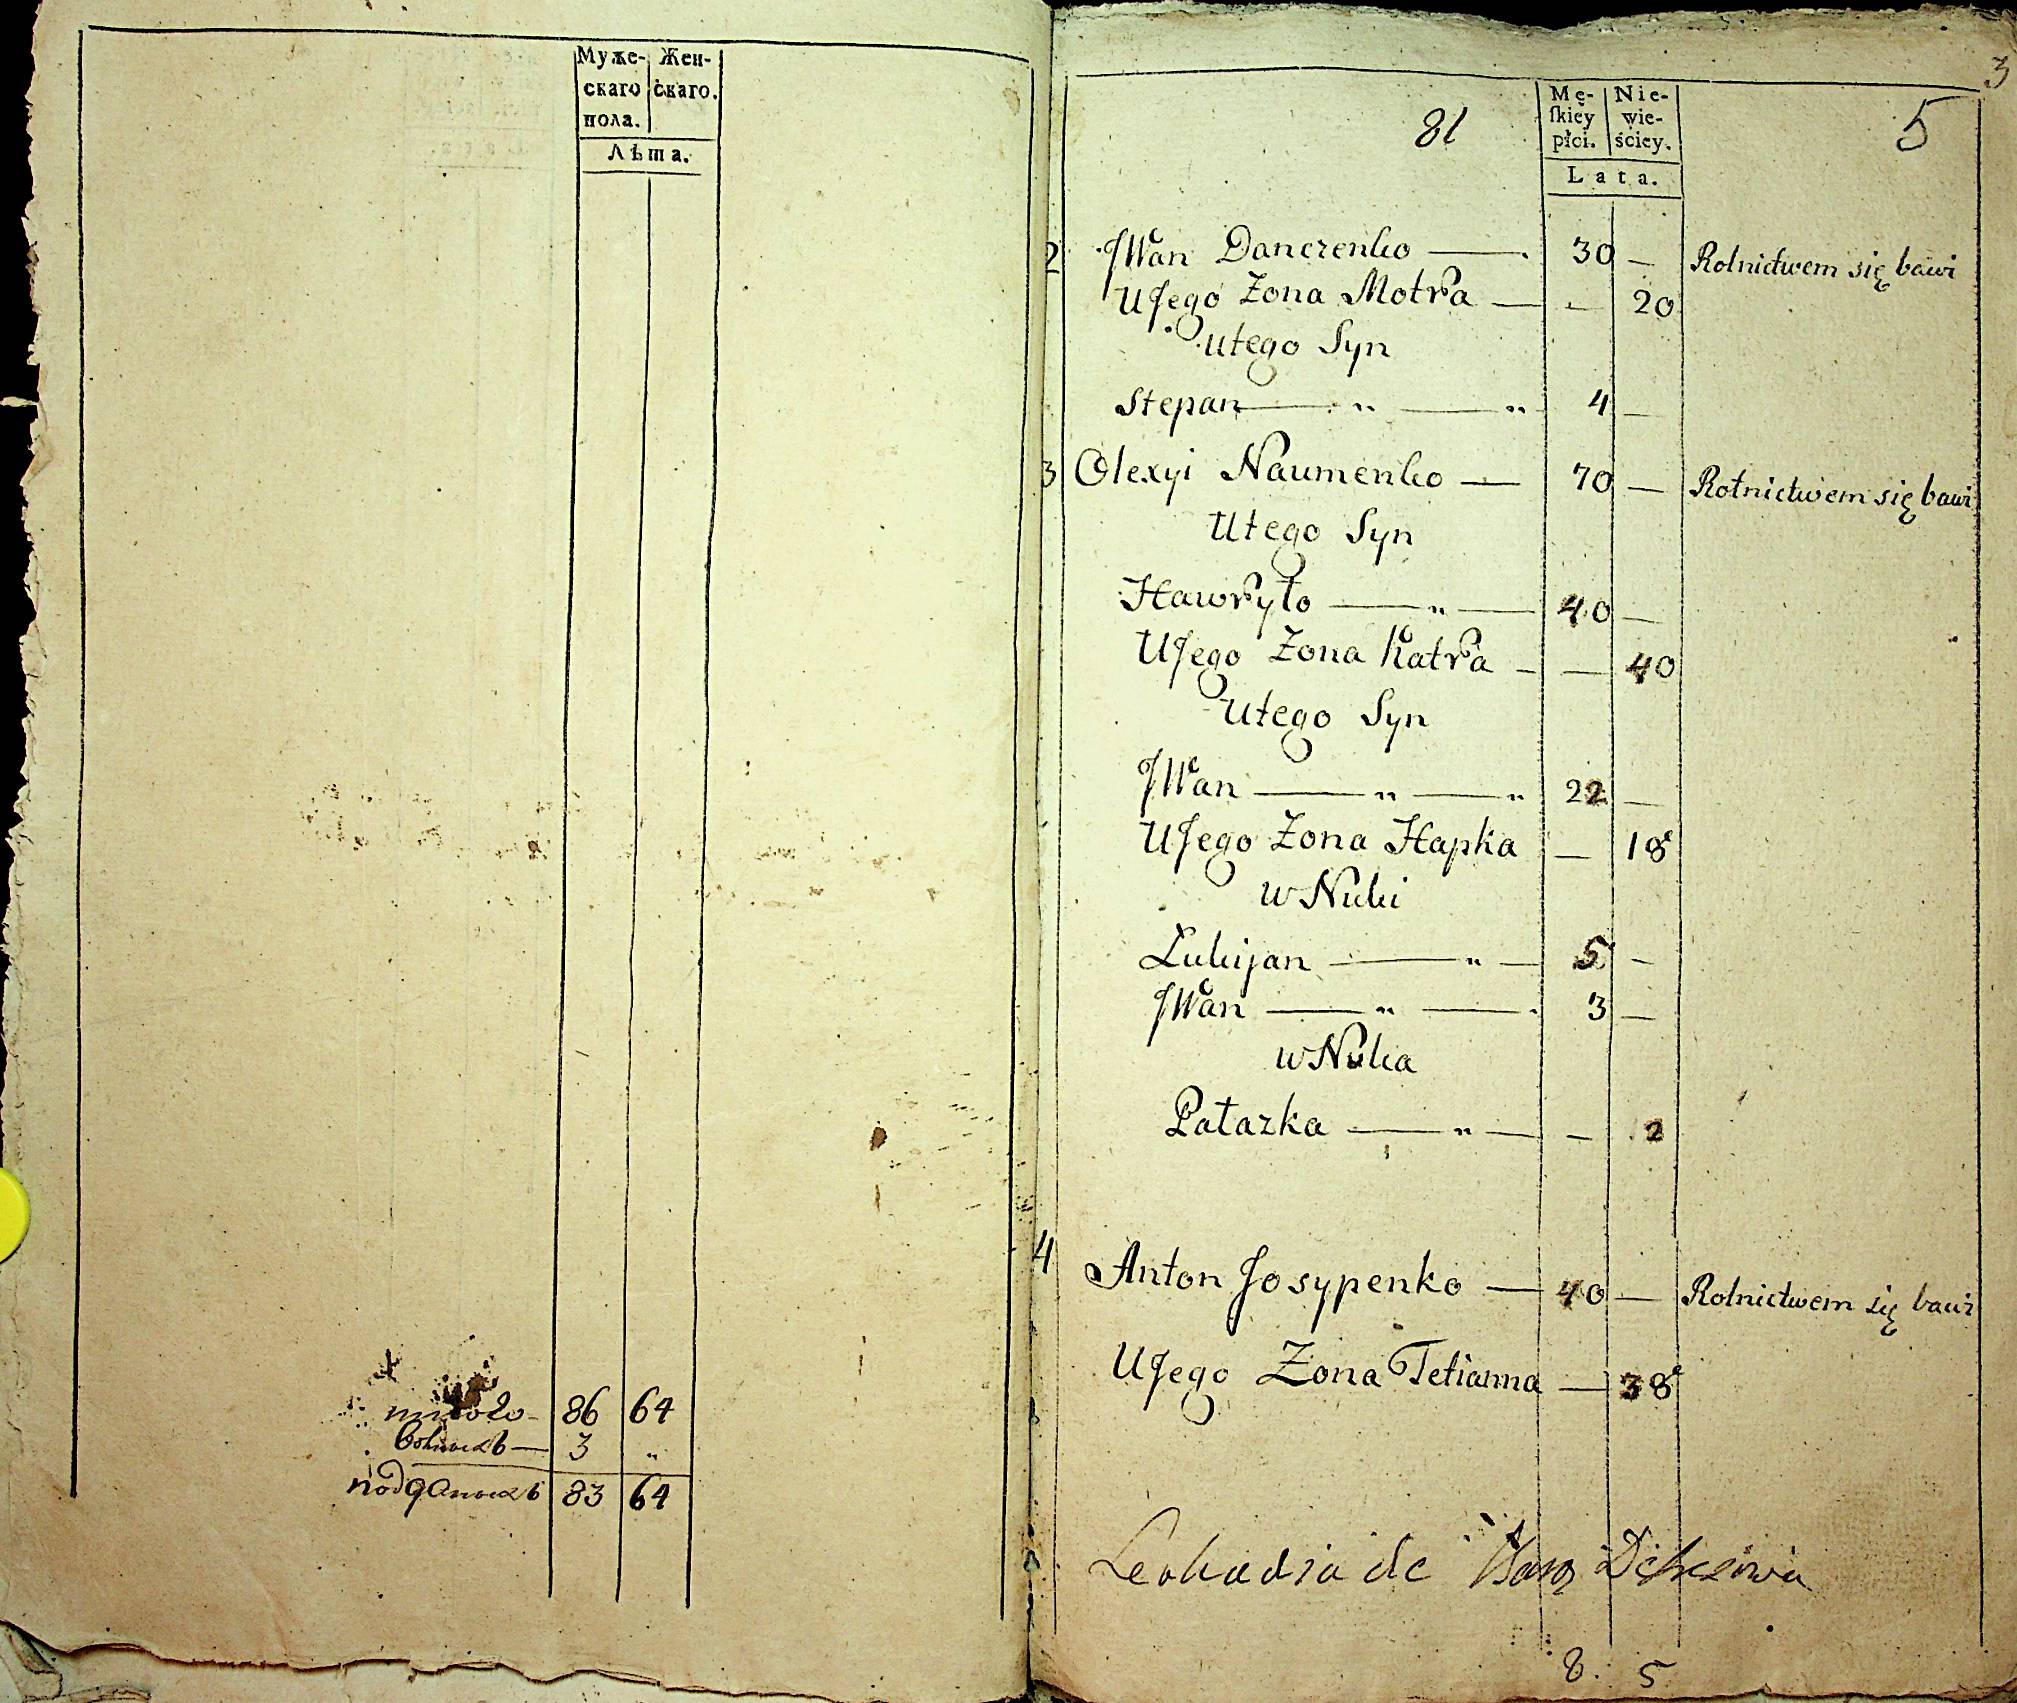 Муже- Жен-
скаго скаго.
пола.
Лѣта.
86 64
3 "
83 64
3
81 5
Mę- Nie-
ſkiey wie-
płci. ściey.
Lata.
2 JWan Danczenko — 30 — Rolnictwem się bawi
UJego Zona Motra — — 20
utego Syn
Stepan — " — " 4 —
3 Olexyi Naumenko — 70 — Rolnictwem się bawi
Utego Syn
Hawryło — " — 40 —
UJego Zona Katra — — 40
Utego Syn
JWan — " — " 22 —
UJego Zona Hapka — 18
w Nuki
Łukijan — " — 5 —
JWan — " — 3 —
w Nuka
Pałazka — " — — 2
4 Anton Josypenko — 40 — Rolnictwem się bawi
UJego Zona Tetianna — 38
8. 5